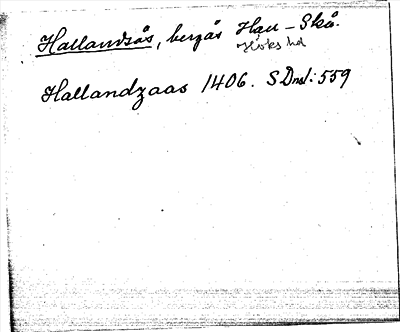 Hallandsås, bergås Hall – Skå.
Höks hd
Hallandzaas 1406. SDns1:559